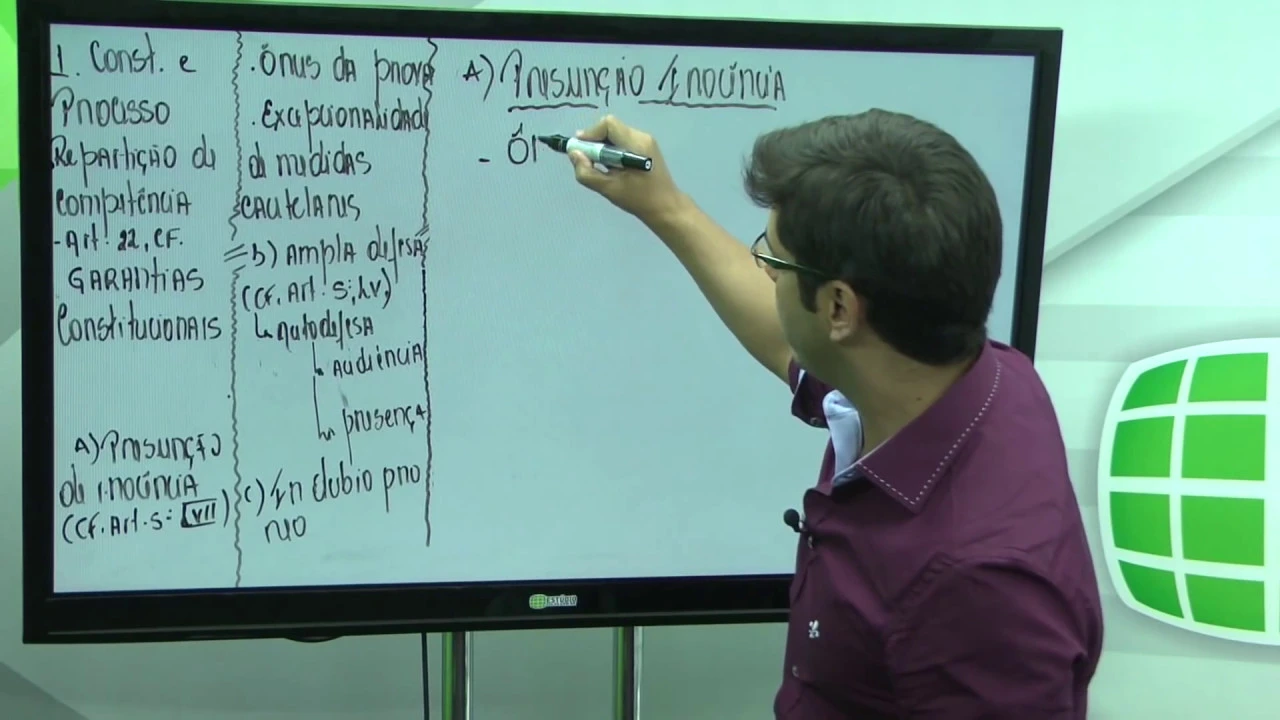 1. Const. e
Processo
Repartição de
Competência
- Art. 22, CF.
GARANTIAS
Constitucionais
A) Presunção
de inocência
(CF. Art. 5º LVII)
. Ônus da prova
. Excepcionalidade
de medidas
cautelares
b) Ampla defesa
(CF. Art. 5º, LV)
autodefesa
Audiência
presença
c) In dubio pro
reo
A) Presunção Inocência
- Ôn